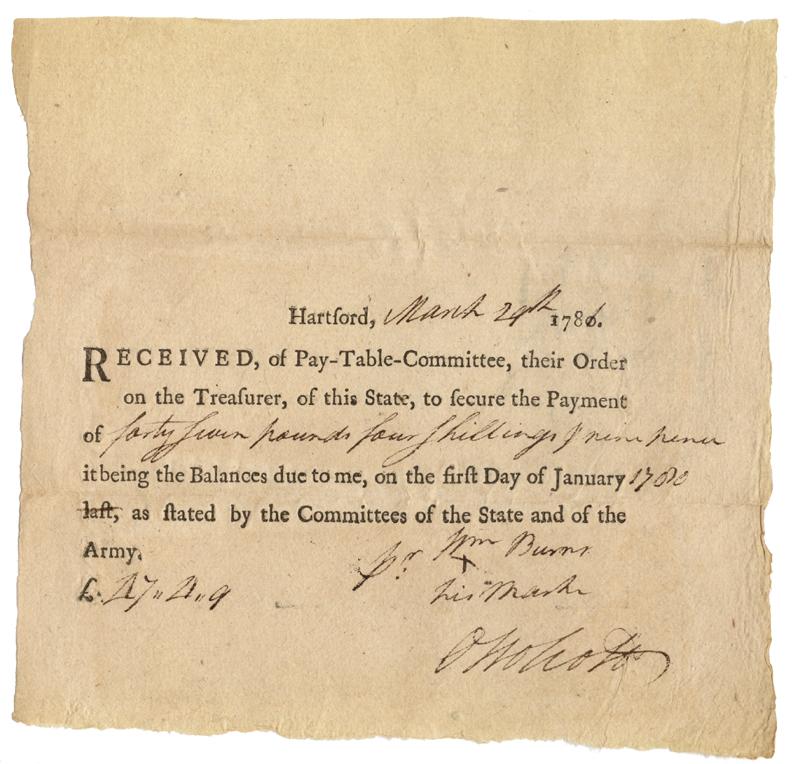 Hartford, March 29th 1786.
RECEIVED, of Pay-Table-Committee, their Order
on the Treaſurer, of this State, to ſecure the Payment
of forty ſeven pounds four ſhillings & nine pence
it being the Balances due to me, on the firſt Day of January 1780
laſt, as ſtated by the Committees of the State and of the
Army.
pr Wm Burns
£. 47,, 4,, 9
X
his Mark
O Wolcott